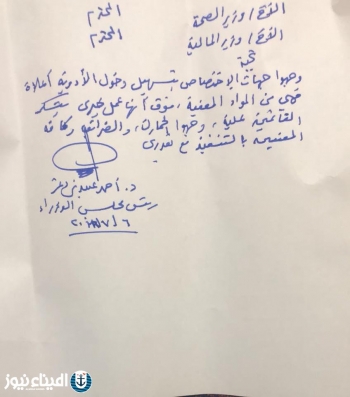 الأخ / وزير الصحة المحترم
الأخ / وزير المالية المحترم
تحية
وجهوا جهات الاختصاص بتسهيل دخول الأدوية أعلاه
فهي من المواد المعفية، فوق أنها عمل خيري يشكر
القائمين عليه، وجهوا الجمارك، والضرائب وكافة
المعنيين بالتنفيذ مع تقديري
د. أحمد عبيد بن دغر
رئيس مجلس الوزراء
الميناء نيوز